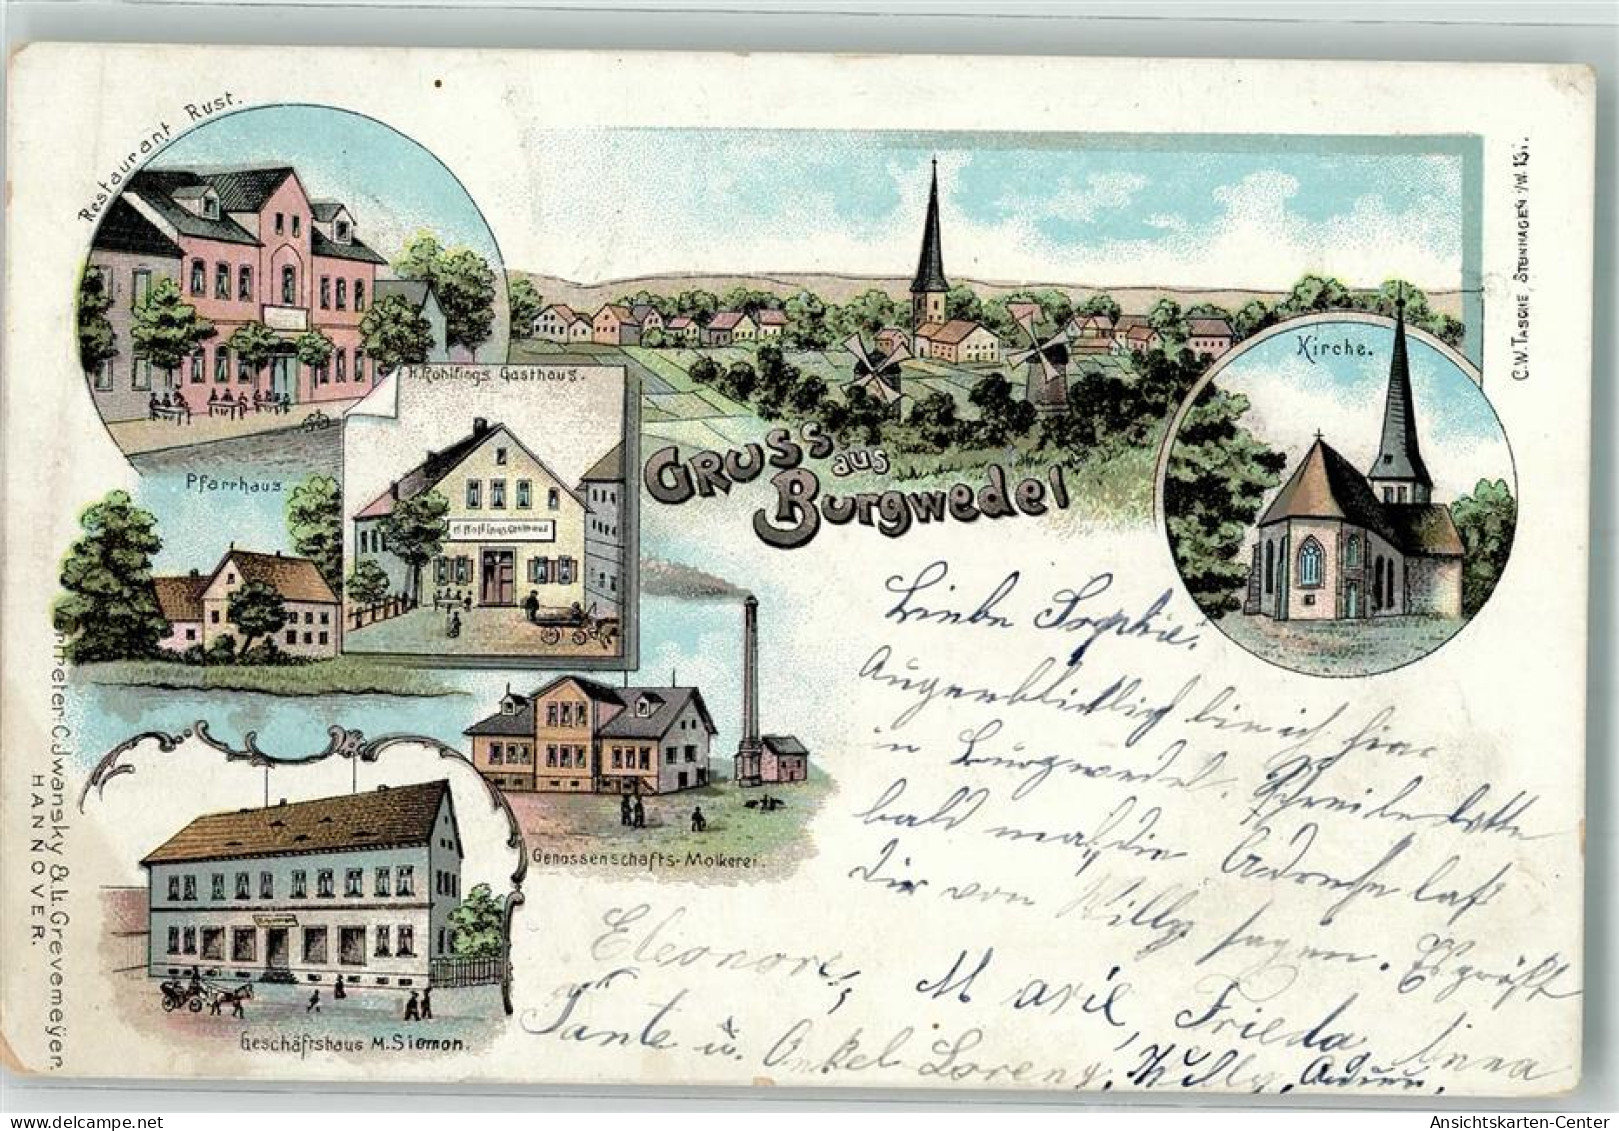 Restaurant Rust.
H. Rohlfings Gasthaus.
Pfarrhaus.
Kirche.
C.W. TASCHE, STEINHAGEN i/W. 131.
GRUSS
aus
Burgwedel
Genossenschafts-Molkerei.
Geschäftshaus M. Siemon.
C. Jwansky & H. Grevemeÿer.
HANNOVER.
Liebe Sophie!
Augenblicklich bin ich hier
in Burgwedel. Schreibe bitte
bald mal, die Adresse laß
Dir von Willy sagen. Es grüßt
Eleonore, Marie, Frieda, Anna
Tante u. Onkel Lorenz, Willy,
Ansichtskarten-Center